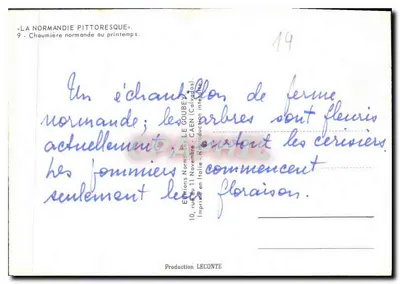 «LA NORMANDIE PITTORESQUE»
9 - Chaumière normande au printemps.
19
Un échantillon de ferme
normande; les arbres sont fleuris
actuellement, surtout les cerisiers.
Les pommiers commencent
seulement leur floraison.
Editions Normandes LE GOUBEY
10, rue du 11 Novembre - CAEN (Calvados)
Imprimé en Italie - Reproduction interdite
Production LECONTE